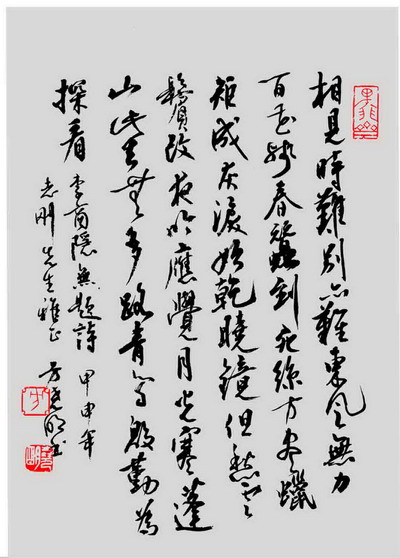 相見時難別亦難東風無力
百花殘春蠶到死絲方盡蠟
炬成灰淚始乾曉鏡但愁雲
鬢改夜吟應覺月光寒蓬
山此去無多路青鳥殷勤為
探看 李商隱無題詩 甲申年
志剛先生雅正